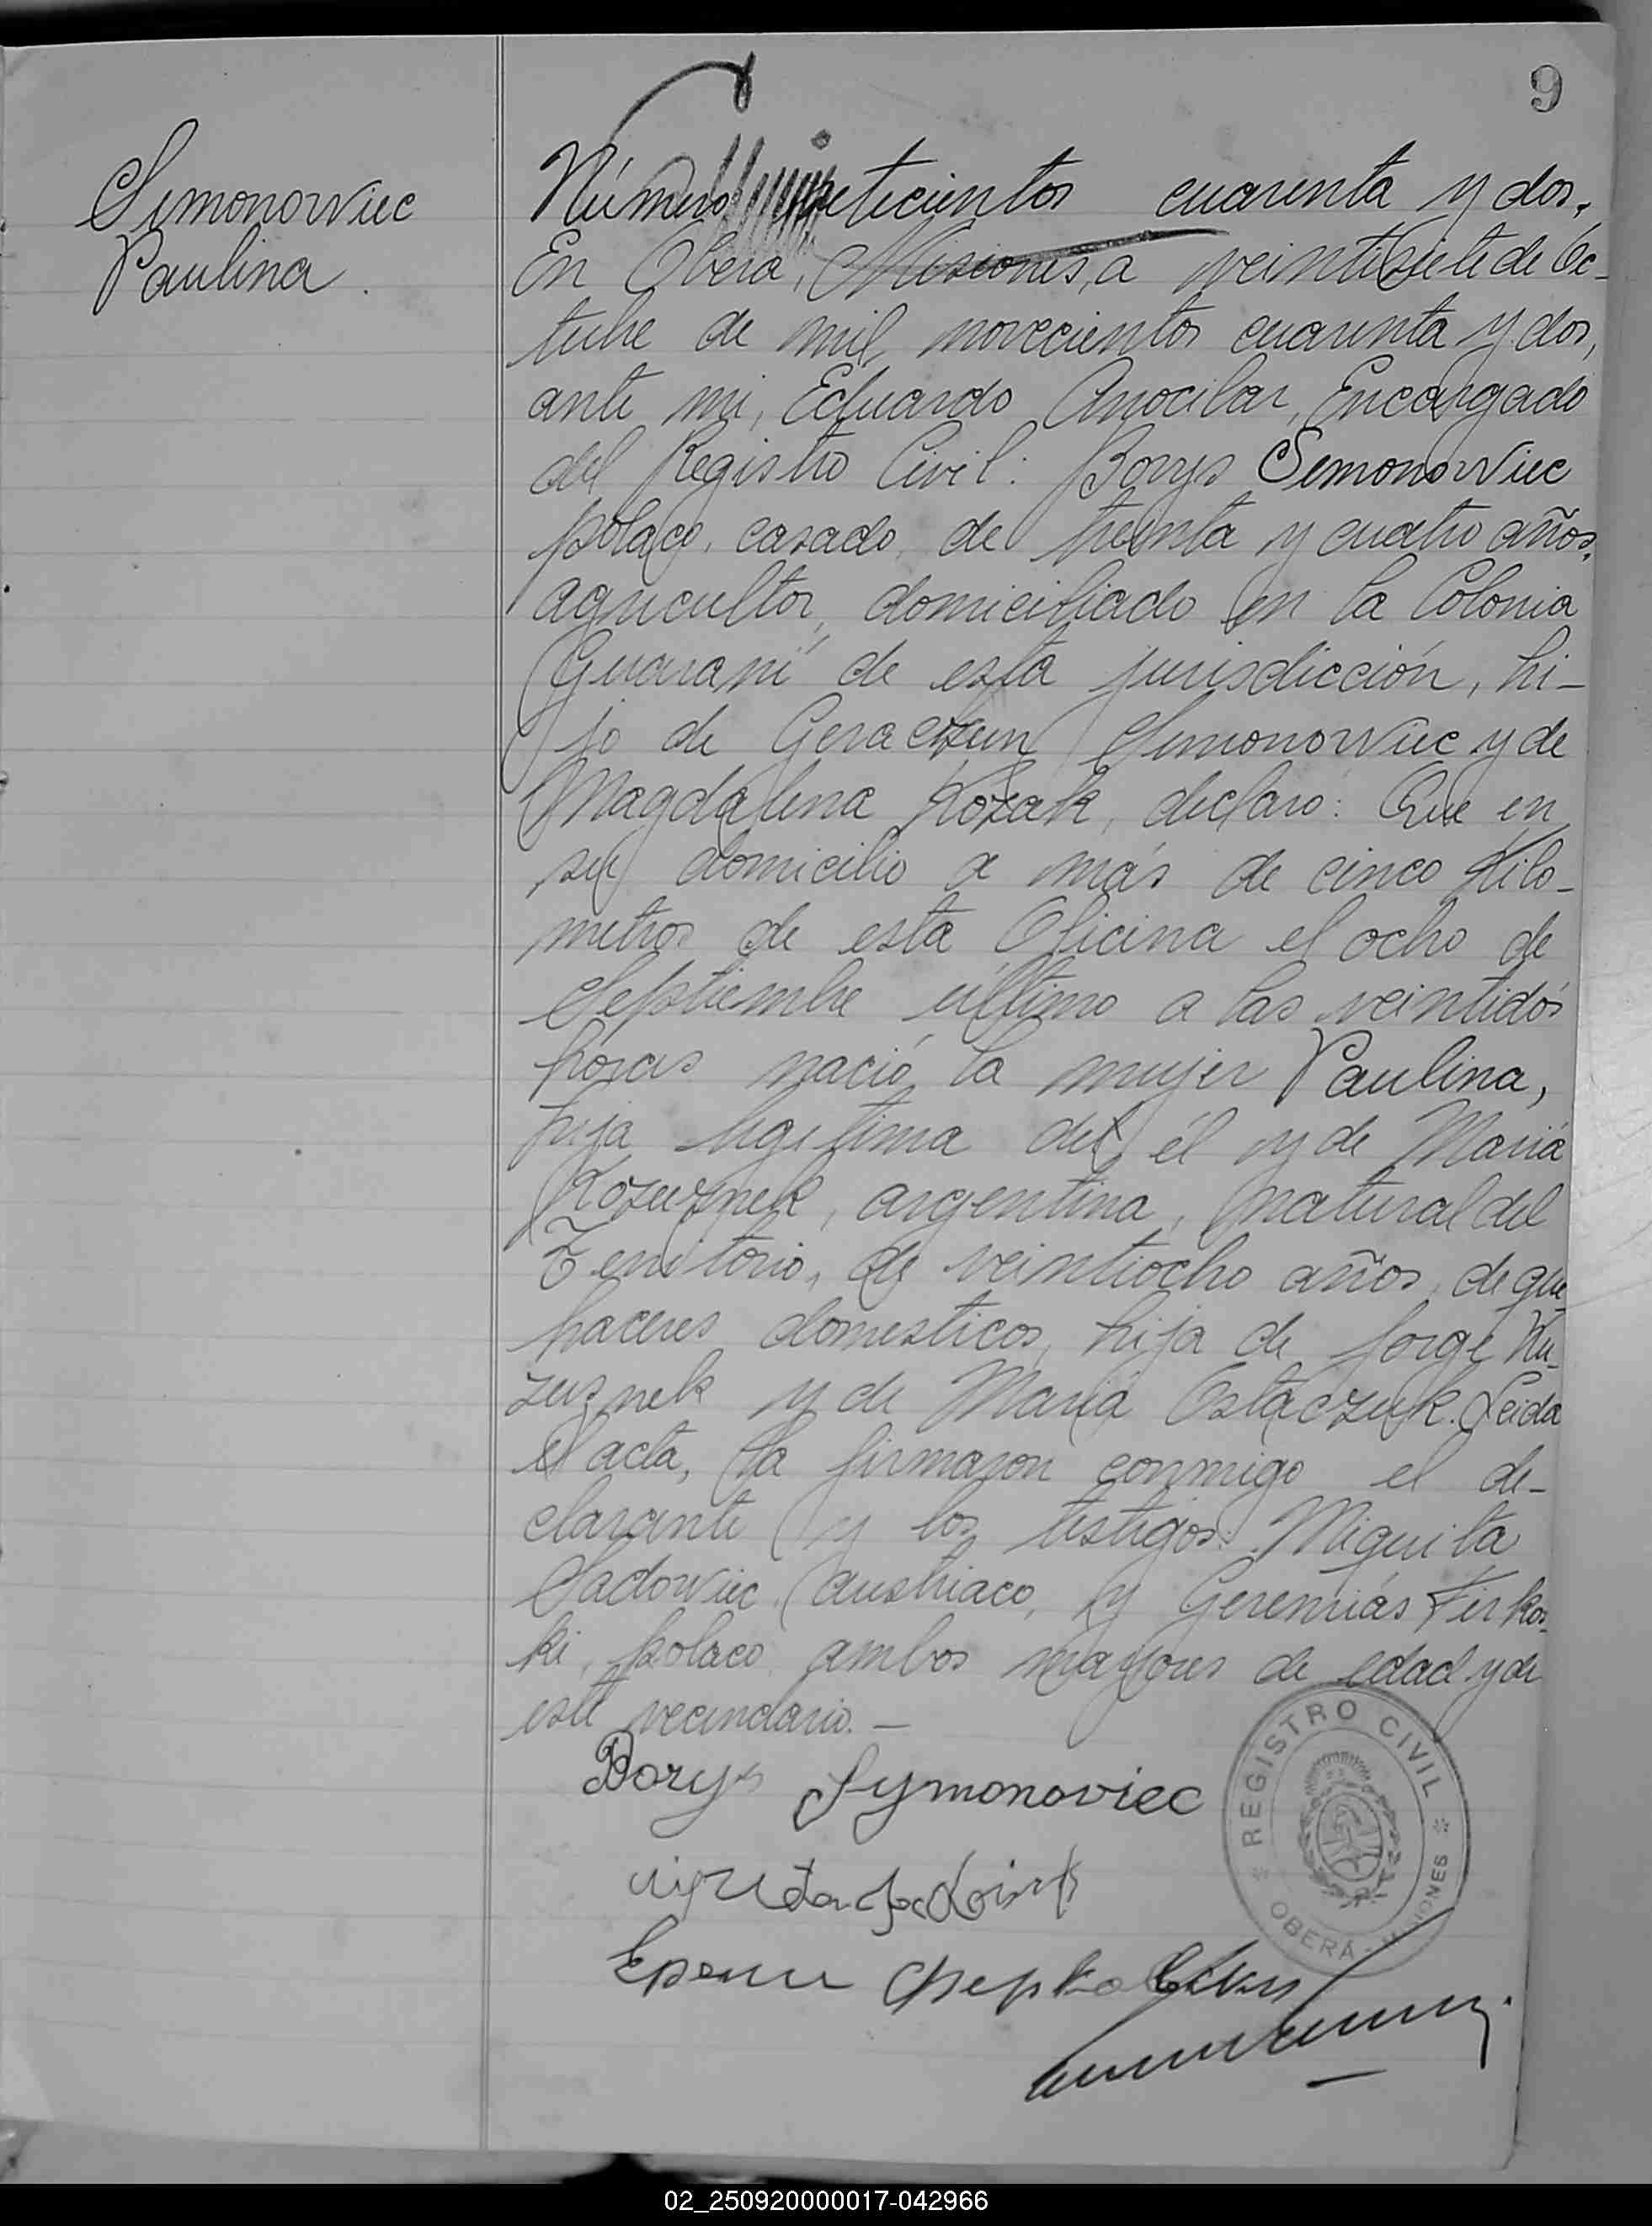 9
Simonowiec
Paulina.
Número setecientos cuarenta y dos.
En Oberá, Misiones, a veintisiete de Oc-
tubre de mil novecientos cuarenta y dos,
ante mi, Eduardo Encargado
del Registro Civil: Borys Semonowiec
polaco, casado, de treinta y cuatro años,
agricultor, domiciliado en la Colonia
Guaraní de esta jurisdicción, hi-
jo de Simonowiec y de
Magdalena Kozak, declaró: Que en
su domicilio a más de cinco Kiló-
metros de esta Oficina el ocho de
Septiembre último a las veintidós
horas nació la mujer Paulina,
hija legitima de él y de María
argentina, natural del
Territorio, de veintiocho años, de que
haceres domesticos, hija de Jorge Ku-
zuznek y de María Ostaczuk. Leida
el acta, la firmaron conmigo el de-
clarante y los testigos: Miguita
Sadowiec, austriaco, y Geremías Firkos-
ki, polaco, ambos mayores de edad y de
este vecindario. —
Borys Symonoviec
REGISTRO CIVIL
OBERÁ - MISIONES
02_250920000017-042966